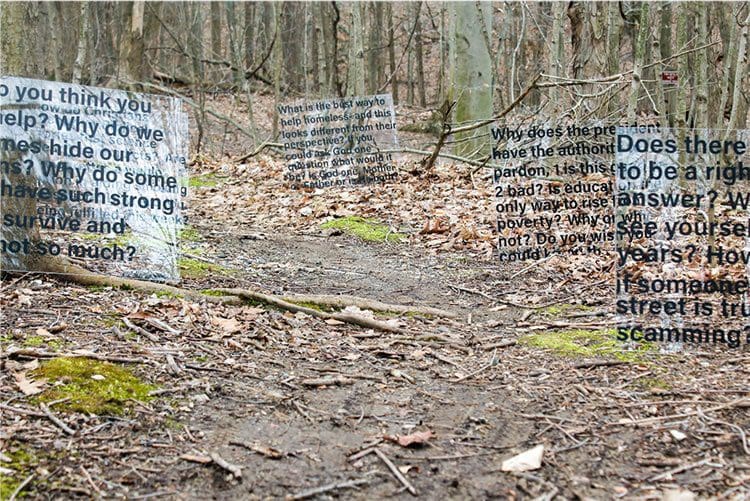 o you think you
elp? Why do we
mes hide our
ns? Why do some
have such strong
survive and
not so much?
What is the best way to
help homeless, and this
looks different from their
perspective? If you
could ask God one
question what would it
be? Is God one, Mother
or
Why does the pre
have the authorit
pardon, 1 is this
2 bad? Is educat
only way to rise
poverty? Why or why
not? Do you wis
could
Does there
to be a righ
answer? W
see yoursel
years? How
if someone
street is tru
scamming?